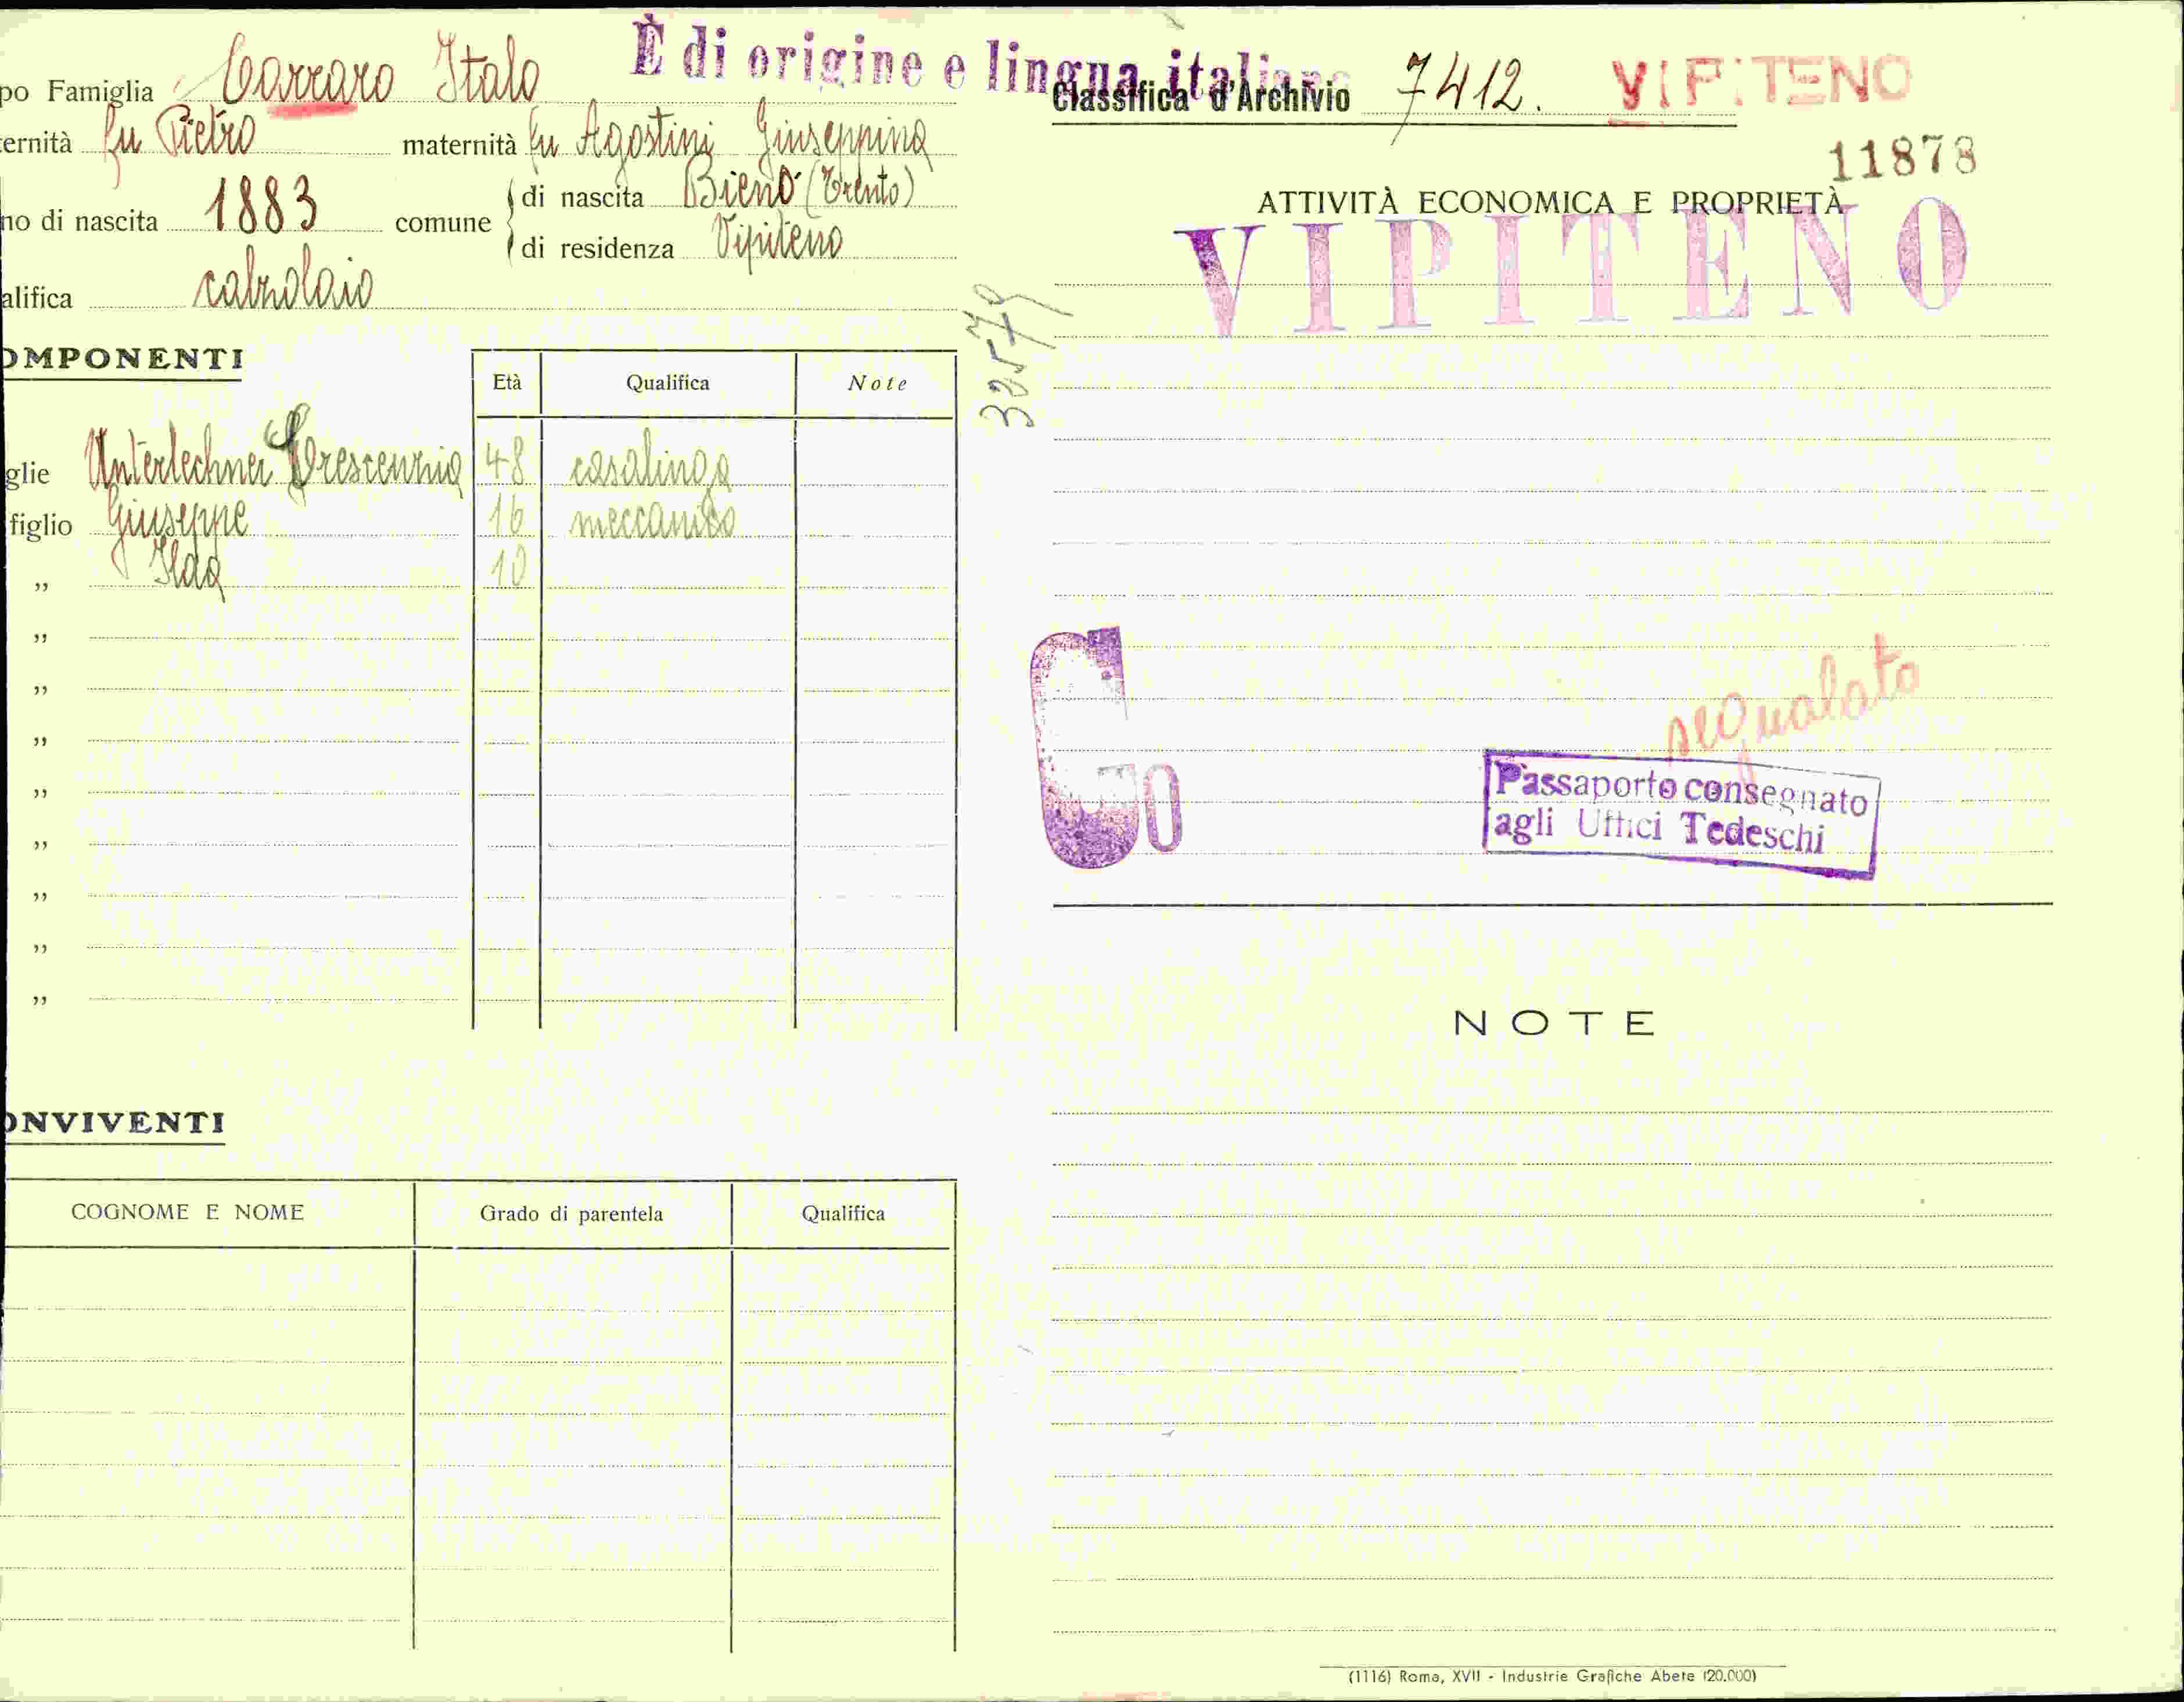 È di origine e lingua italiana
po Famiglia Carraro Italo
ernità fu Pietro maternità fu Agostini Giuseppina
no di nascita 1883 comune di nascita Bieno (Trento)
di residenza Vipiteno
alifica calzolaio
OMPONENTI
Età Qualifica Note
glie Unterlechner Crescenzia 48 casalinga
figlio Giuseppe 16 meccanico
„ Ilda 10
„
„
„
„
„
„
„
„
ONVIVENTI
COGNOME E NOME Grado di parentela Qualifica
Classifica d'Archivio 7412. VIPITENO
11878
ATTIVITÀ ECONOMICA E PROPRIETÀ
VIPITENO
segnalato
Passaporto consegnato
agli Uffici Tedeschi
NOTE
(1116) Roma, XVII - Industrie Grafiche Abete (20.000)